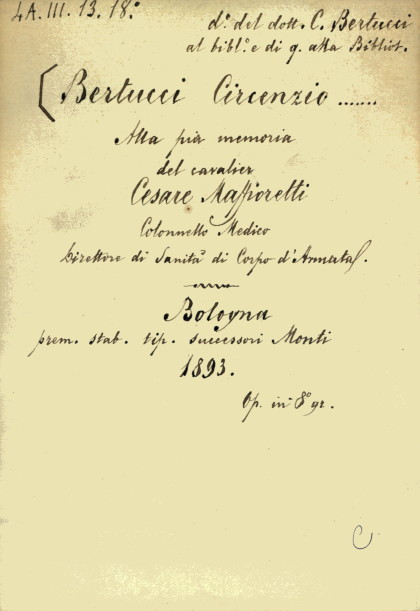 4A. III. 13. 18.°
d.° del dott. C. Bertucci
al bibl.° e di q. alla Bibliot.
[Bertucci Circenzio .......
Alla pia memoria
del cavalier
Cesare Maffioretti
Colonnello Medico
Direttore di Sanità di Corpo d'Armata.
Bologna
prem. stab. tip. successori Monti
1893.
Op. in 8° gr.
C